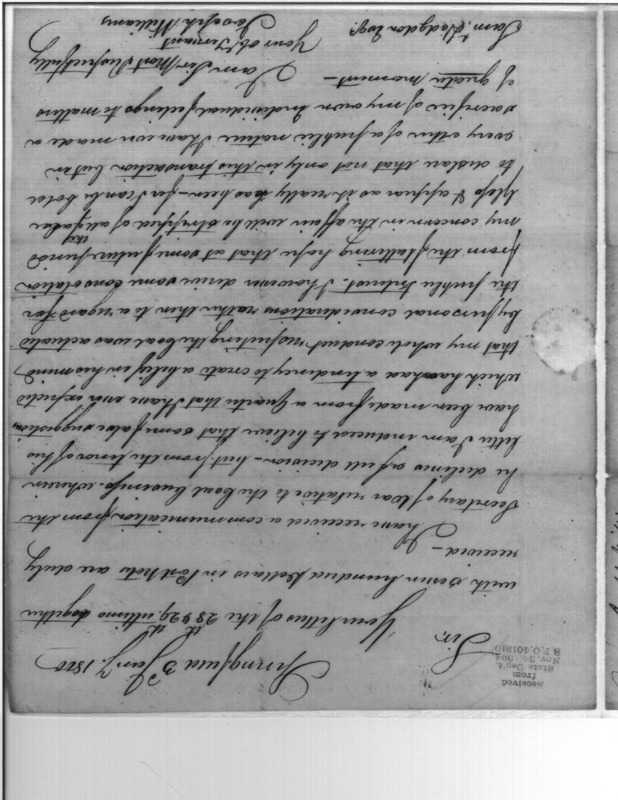 Received
from
State Dep't.
Nov. 24, 1904
R.P.O. 401810
Springfield 3d Jany. 1800
Sir
Your letters of the 28th & 29th ultimo together
with seven hundred Dollars in Post Notes are duly
received —
I have received a communication from the
Secretary of War relative to the boat business, wherein
he declines a full decision — but from the tenor of his
letter I am induced to believe that some false suggestions
have been made from a quarter that I have ever expected
which has had a tendency to create a belief in his mind
that my whole conduct respecting the boat was actuated
by personal considerations rather than to a regard for
the public Interest. I however derive some Consolation
from the flattering hope that at some future period
my concern in the affair will be stripped of its false
& appear as it really has been — for I can be bold
to declare that not only in this transaction but in
every other of a public nature I have even made a
sacrifice of my own Individual feelings to matters
of greater moment —
I am Sir Most Respectfully
Your Obt Servant
Joseph Williams
Saml. Hodgdon Esqr.